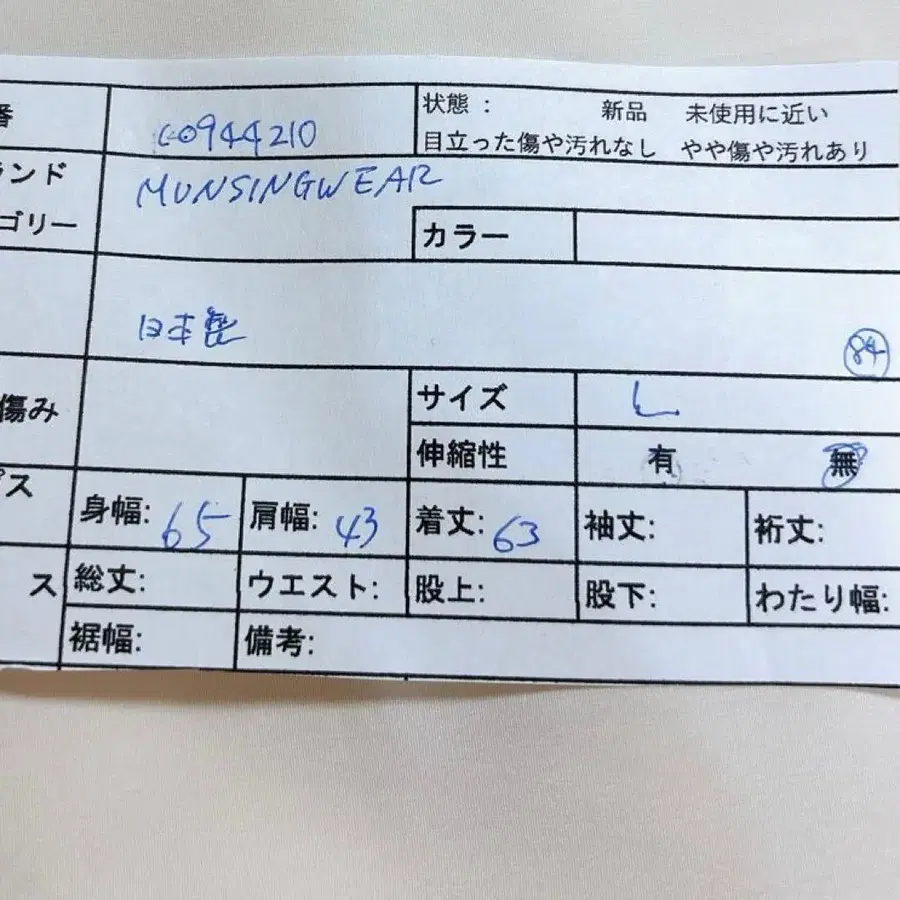 番 C0944210 状態： 新品 未使用に近い
目立った傷や汚れなし やや傷や汚れあり
ランド MUNSINGWEAR
ゴリー カラー
日本製 84
傷み サイズ L
伸縮性 有 無
プス 身幅: 65 肩幅: 43 着丈: 63 袖丈: 裄丈:
ス 総丈: ウエスト: 股上: 股下: わたり幅:
裾幅: 備考: